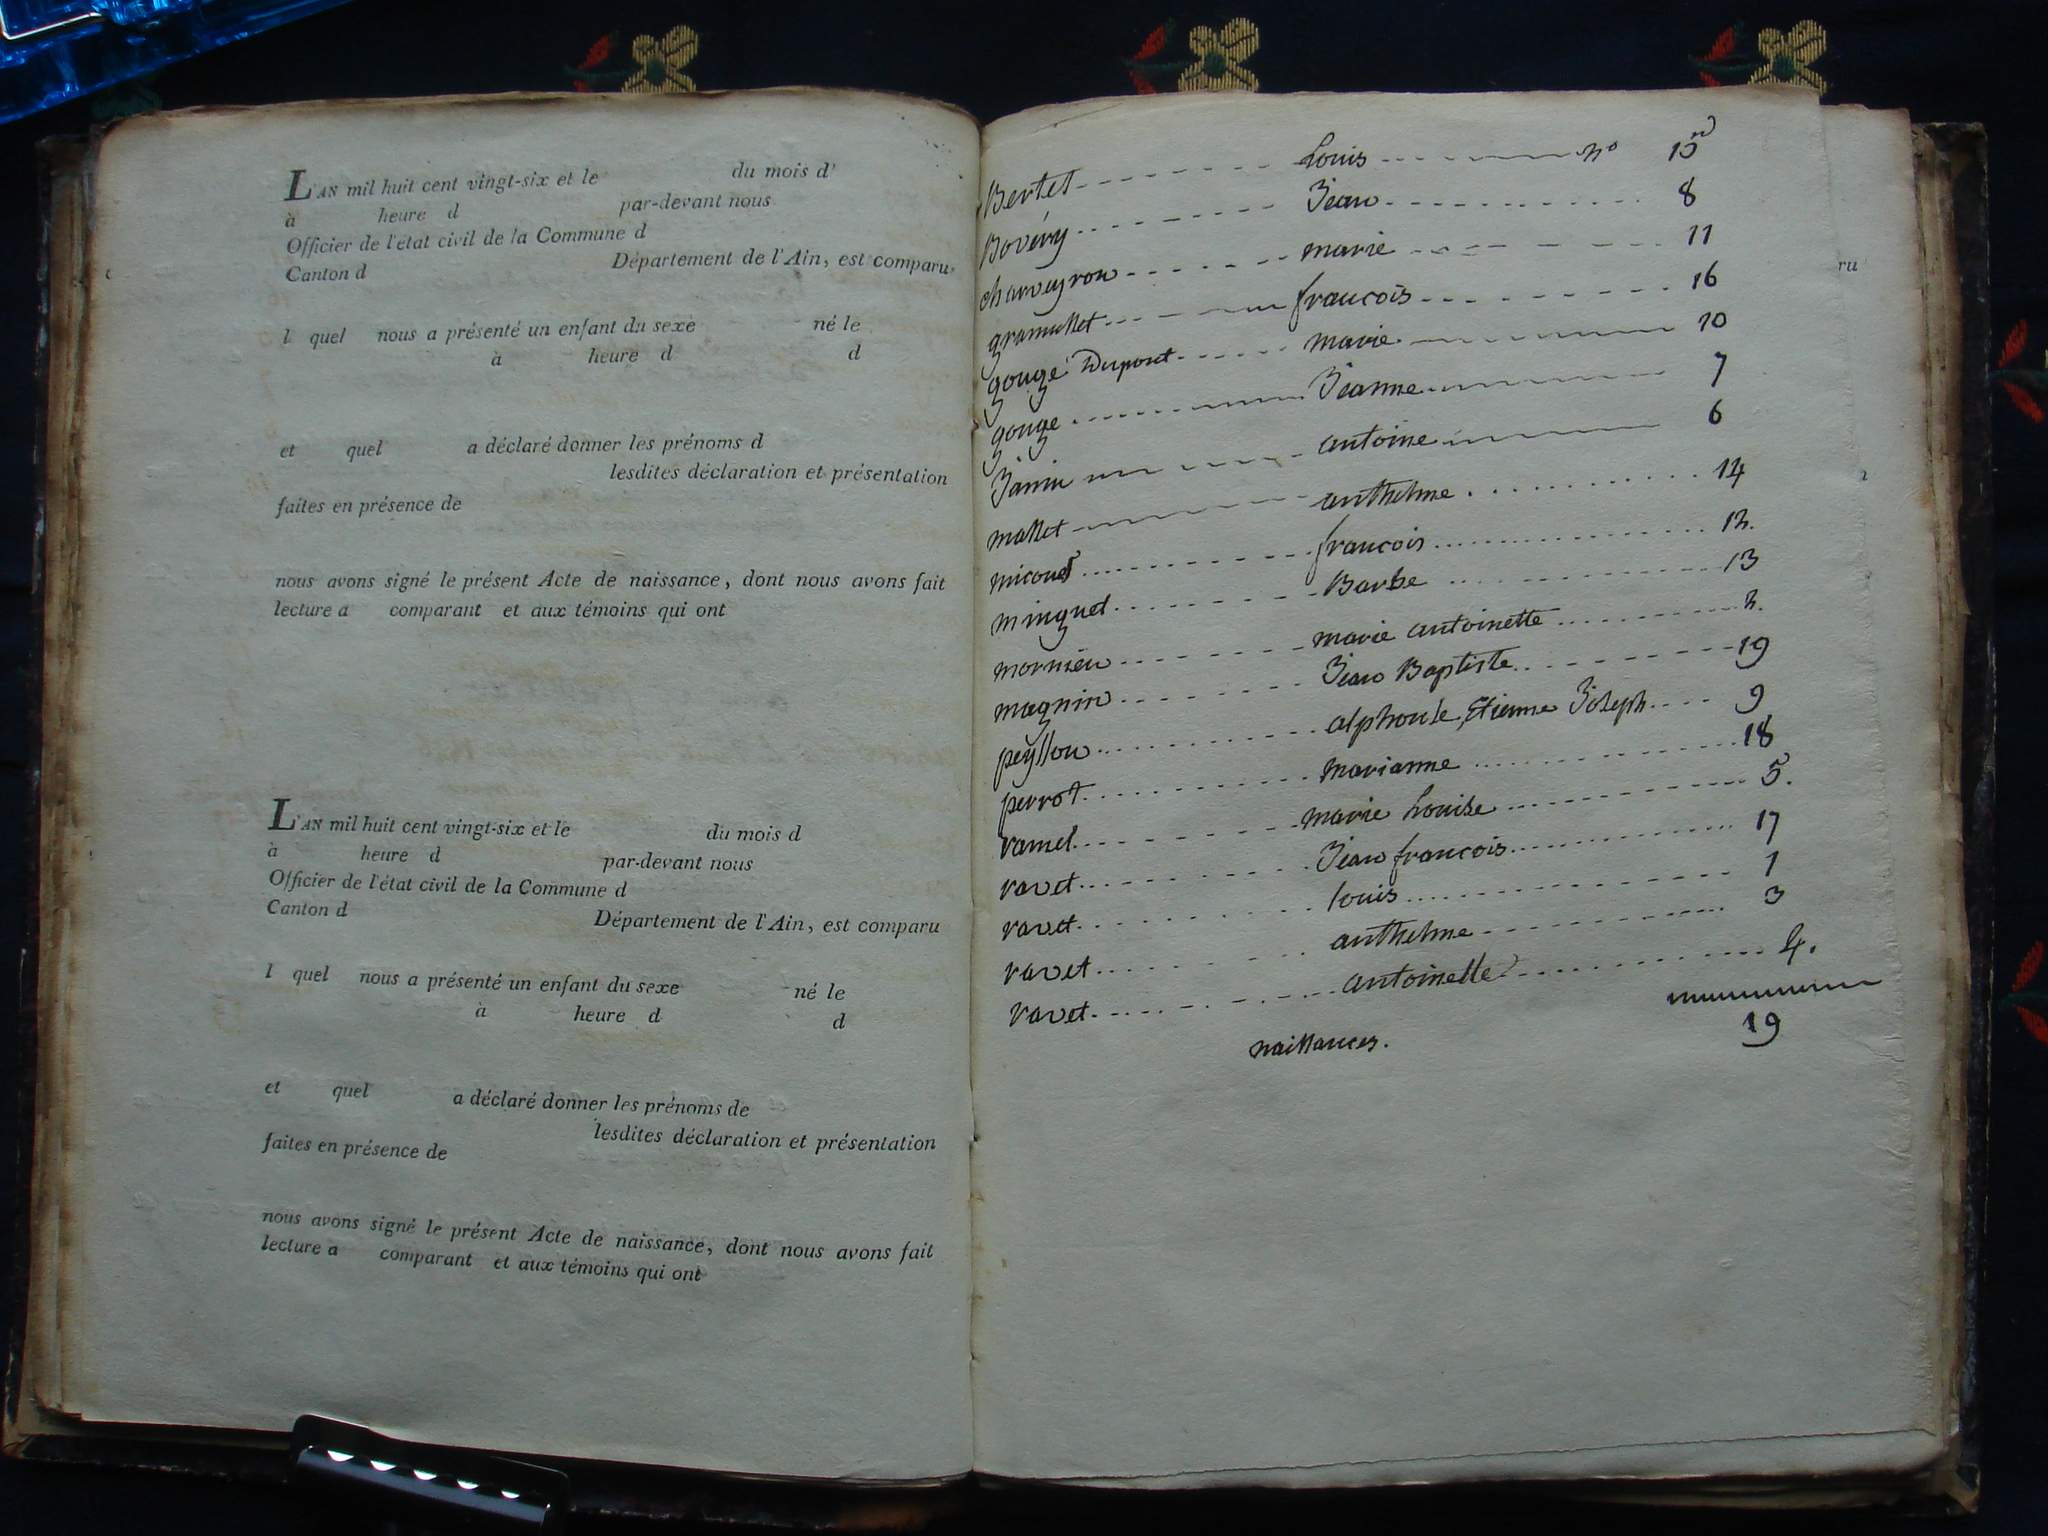 L'AN mil huit cent vingt-six et le du mois d'
à heure d par-devant nous
Officier de l'état civil de la Commune d
Canton d Département de l'Ain, est comparu,
l quel nous a présenté un enfant du sexe né le
à heure d d
et quel a déclaré donner les prénoms d
lesdites déclaration et présentation
faites en présence de
nous avons signé le présent Acte de naissance, dont nous avons fait
lecture a comparant et aux témoins qui ont
L'AN mil huit cent vingt-six et le du mois d
à heure d par-devant nous
Officier de l'état civil de la Commune d
Canton d Département de l'Ain, est comparu
l quel nous a présenté un enfant du sexe né le
à heure d d
et quel a déclaré donner les prénoms de
lesdites déclaration et présentation
faites en présence de
nous avons signé le présent Acte de naissance, dont nous avons fait
lecture a comparant et aux témoins qui ont
Bertet Louis no 15
Bovéry Jean 8
charveyron marie 11
gramullet francois 16
gouge Dupont marie 10
gouge Jeanne 7
Janin antoine 6
mallet anthelme 14
micoud francois 12.
minguet Barbe 13
mornieu marie antoinette 2.
magnin Jean Baptiste 19
peysson alphonse, Etienne Joseph 9
perrot marianne 18
ramel marie Louise 5.
ravet Jean francois 17
ravet louis 1
ravet anthelme 3
ravet antoinette 4.
naissances. 19
ru